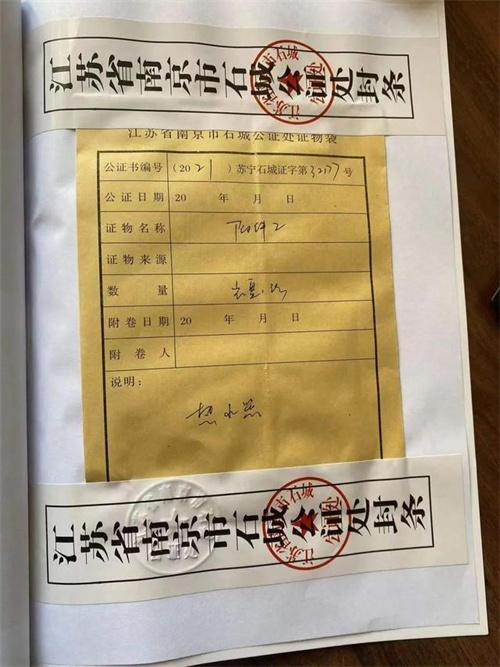 江苏省南京市石城公证处封条
江苏省南京市石城公证处证物袋
公证书编号 (2021) 苏宁石城证字第32177号
公证日期 20 年 月 日
证物名称 附件2
证物来源
数量
附卷日期 20 年 月 日
附卷人
说明：
热水器
江苏省南京市石城公证处封条